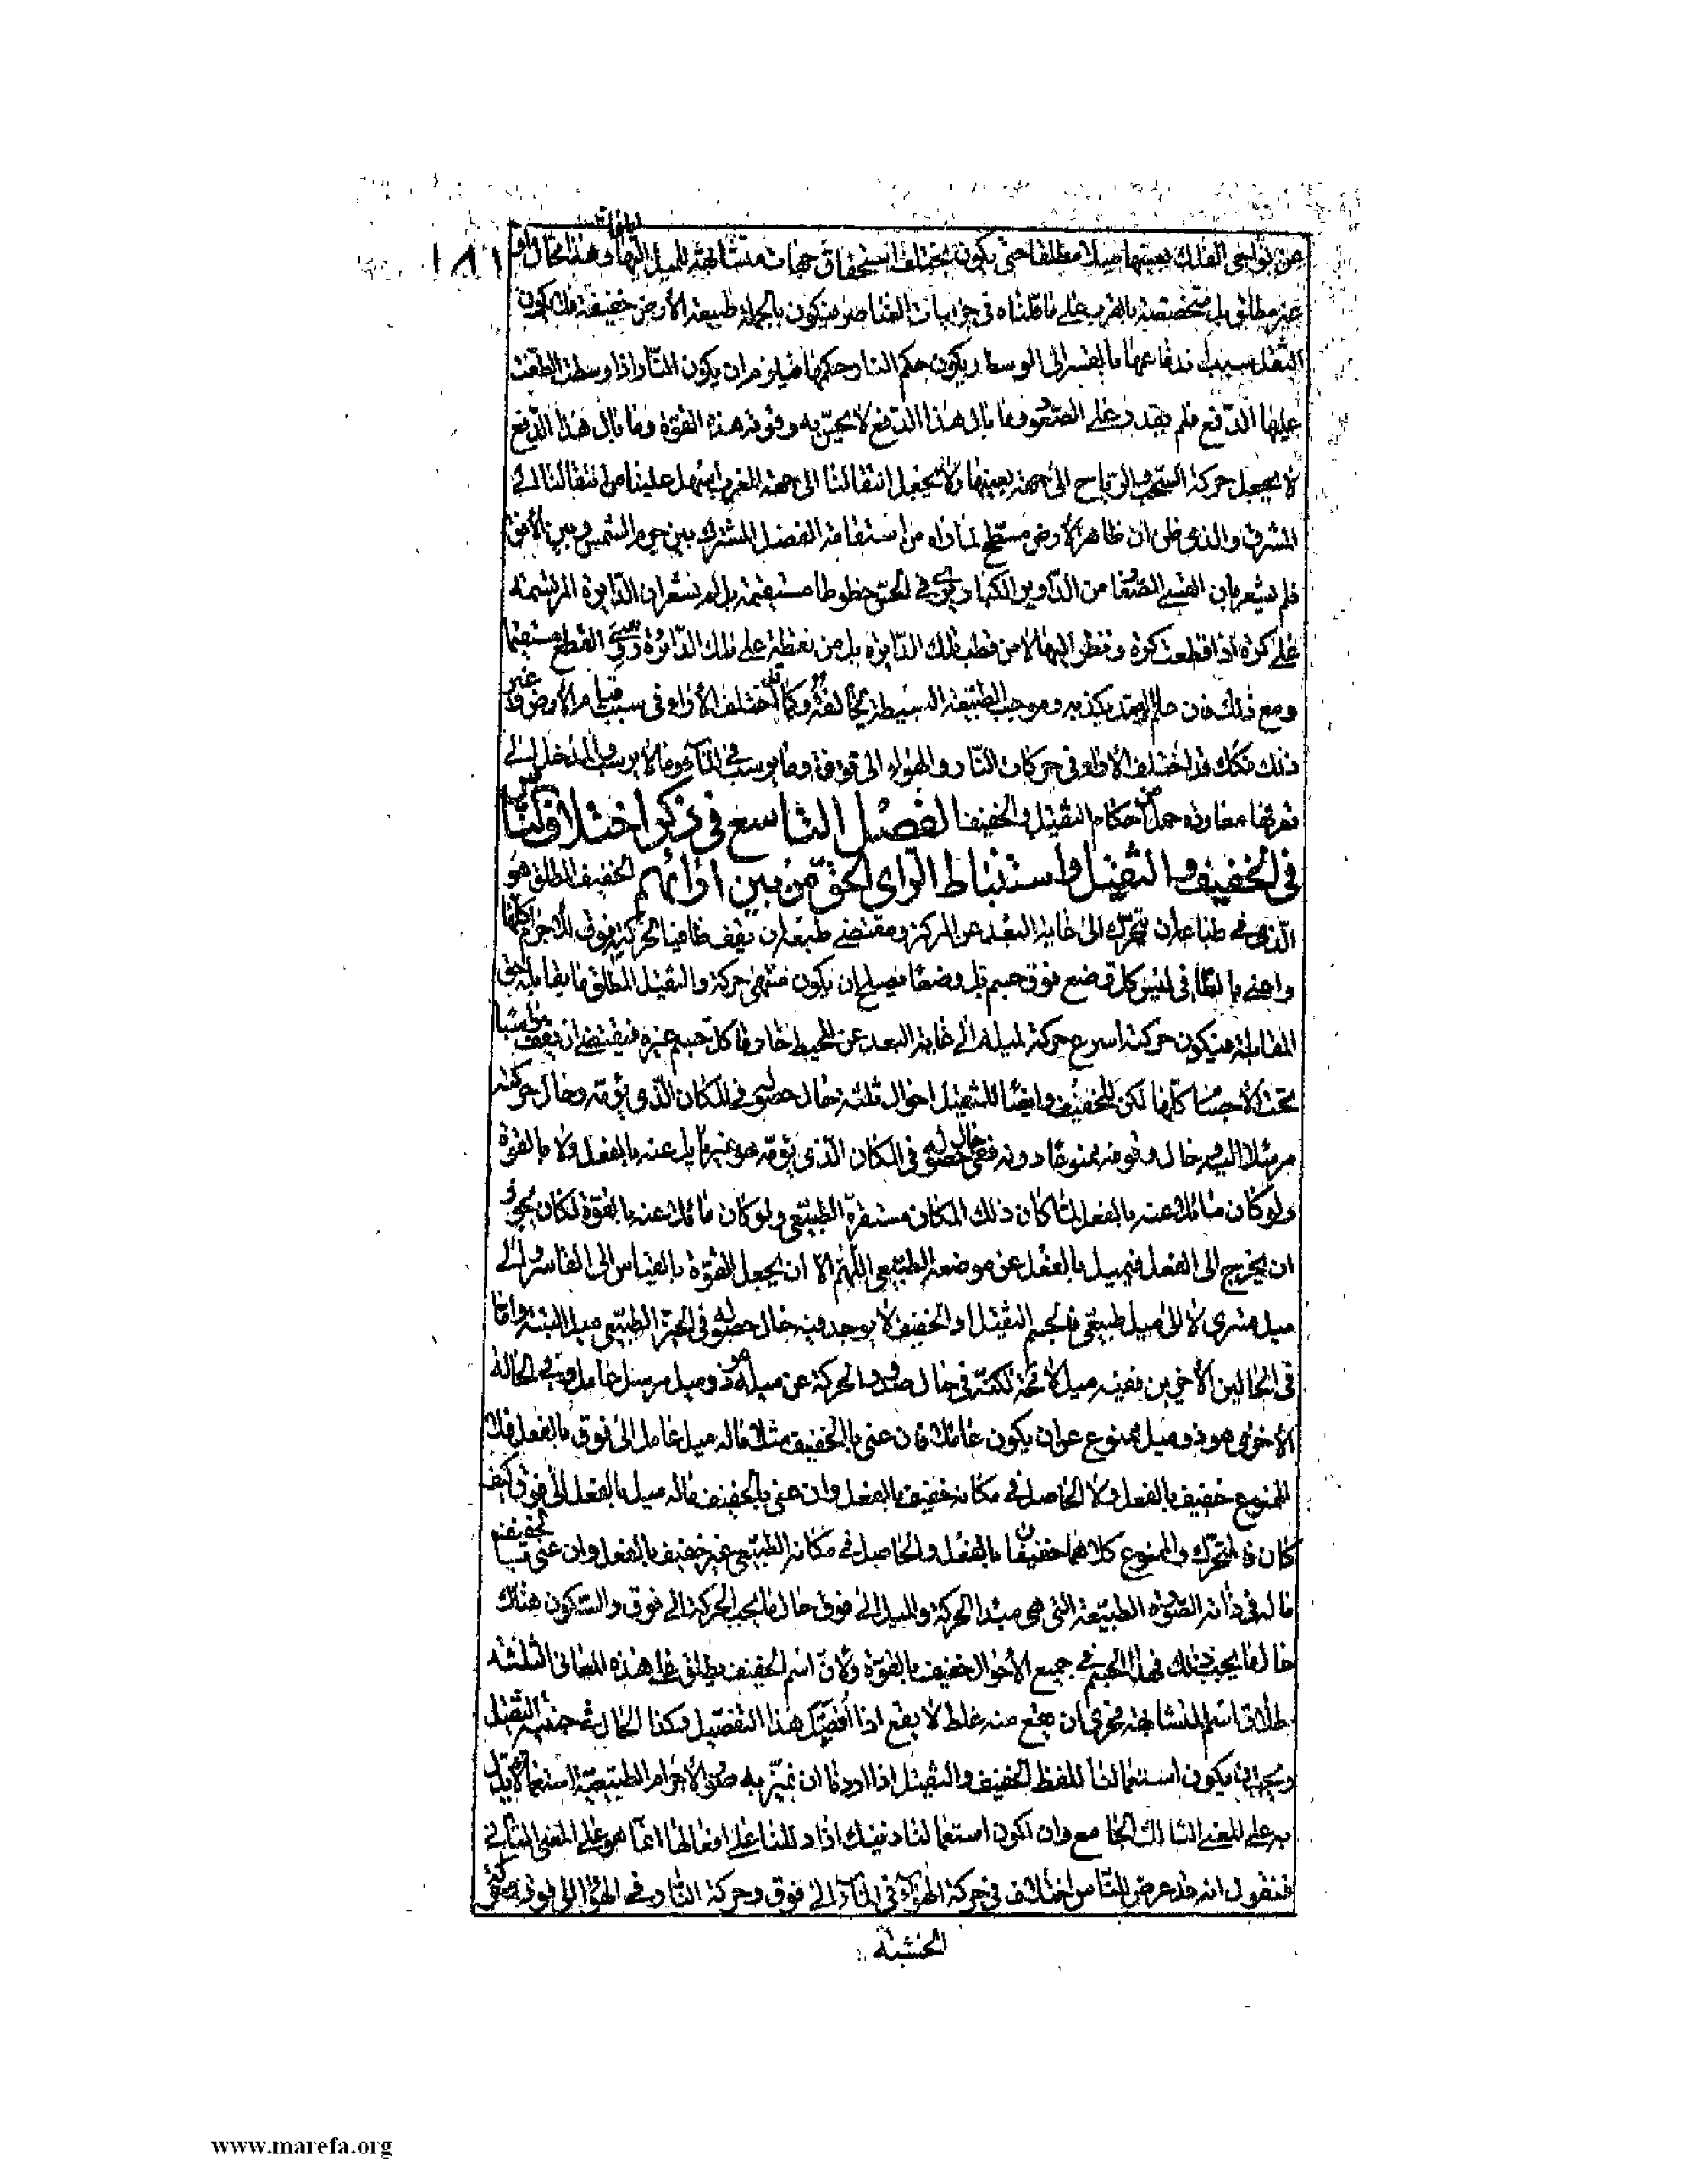 ١٨١
من نواحى الفلك بعينها ميلا مطلقا حتى يكون مختلف استحقاق جهات متشابهة للميل اليها وهذا محال واما
غير مطلق بل متخصصة بالقرب على ما قلناه فى جزييات العناصر فيكون بالجملة طبيعة الأرض خفيفة فلا يكون
الثقل بسبب اندفاعها بالقسر الى الوسط ويكون حكم النار حكمها فيلزم ان يكون النار اذا وسطت الطفت
عليها الدفع فلم يقدر على الصعود وما بال هذا الدفع لا يحس به وقوته هذه القوة وما بال هذا الدفع
لا يجعل حركة السحب والرياح الى جهة بعينها ولا يجعل انتقالنا الى جهة المغرب اسهل علينا من انتقالنا الى
المشرق والذى ظن ان ظاهر الأرض مسطح لما راه من استقامة الفصل المشترك بين جرم الشمس وبين الأفق
فلم يشعر بان القسى الصغار من الدواير الكبار ترى فى الحس خطوطا مستقيمة بل لم يشعر ان الدايرة المرتسمة
على كرة اذا قطعت كرة ونظر اليها لا من قطب تلك الدايرة بل من نقطة على تلك الدائرة رؤى القطع مستقيما
ومع ذلك فان حلم الرصد يكذبه وموجب الطبيعة البسيطة يخالفه وكما قد اختلف الأراء فى سبب قيام الأرض وغير
ذلك فكذلك قد اختلف الأراء فى حركات النار والهواء الى فوق وما يرسب فى الماء وما لا يرسب والمدخل الى
تعرفها معاودة جمل من احكام الثقيل والخفيف الفصل التاسع فى ذكر اختلاف الناس
فى الخفيف والثقيل واستنباط الراى الحق من بين ارائهم الخفيف المطلق هو
الذى فى طباعه ان يتحرك الى غاية البعد عن المركز ومقتضى طبعه ان يقف طافيا بحركته فوق الأجرام كلها
واعنى بالطافى ليس كل وضع فوق جسم بل وضعا يصلح ان يكون منتهى حركة والثقيل المطلق ما يقابله حق
المقابلة فيكون حركته اسرع حركة لميله الى غاية البعد عن المحيط خارقا كل جسم غيره فيقتضى ان يقف راسبا
تحت الأجسام كلها لكن للخفيف وايضا للثقيل احوال ثلثة حال حصوله فى المكان الذى يؤمه وحال حركته
مرسلا اليه وحال وقوفه ممنوعا دونه ففى حال حصوله فى المكان الذى يؤمه هو غير مايل عنه بالفعل ولا بالقوة
ولو كان مائلا عنه بالفعل لما كان ذلك المكان مستقره الطبيعى ولو كان مائلا عنه بالقوة لكان يجوز
ان يخرج الى الفعل فيميل بالفعل عن موضعه الطبيعى اللهم الا ان يجعل القوة بالقياس الى القاسر والى
ميل قسرى لا الى ميل طبيعى فالجسم الثقيل او الخفيف لا يوجد فيه حال حصوله فى الحيز الطبيعى ميل البتة واما
فى الحالين الأخريين ففيه ميل لا محة لكنه فى حال صدور الحركة عن ميله هو ذو ميل مرسل عامل وفى الحالة
الأخرى هو ذو ميل ممنوع عن ان يكون عاملا فان عنى بالخفيف مثلا ما له ميل عامل الى فوق بالفعل فلا
الممنوع خفيف بالفعل ولا الحاصل فى مكانه خفيف بالفعل وان عنى بالخفيف ما له ميل بالفعل الى فوق كيف
كان فالمتحرك والممنوع كلاهما خفيفان بالفعل والحاصل فى مكانه الطبيعى غير خفيف بالفعل وان عنى بالخفيف
ما له فى ذاته الصورة الطبيعة التى هى مبدا الحركة والميل الى فوق حال ما يجب الحركة الى فوق والسكون هناك
حال ما يجب ذلك فهذا الجسم فى جميع الأحوال خفيف بالقوة ولأن اسم الخفيف يطلق على هذه المعانى الثلثة
طلاق اسم المتشابهة فحرى ان يقع منه غلط لا يقع اذا فصل هذا التفصيل وكذا الحال فى جنبة الثقيل
ويجب ان يكون استعمالنا للفظ الخفيف والثقيل اذا اردنا ان نميز به صور الأجرام الطبيعية استعمالا يدل
به على المعنى الثالث الجامع وان لكون استعمالنا ذينك اذا دللنا على افعالها انما هو على المعنى الثانى
فنقول انه قد عرض للناس اختلاف فى حركة الهواء فى الماء الى فوق وحركة النار فى الهواء الى فوق وحركة
الخشبة
www.marefa.org